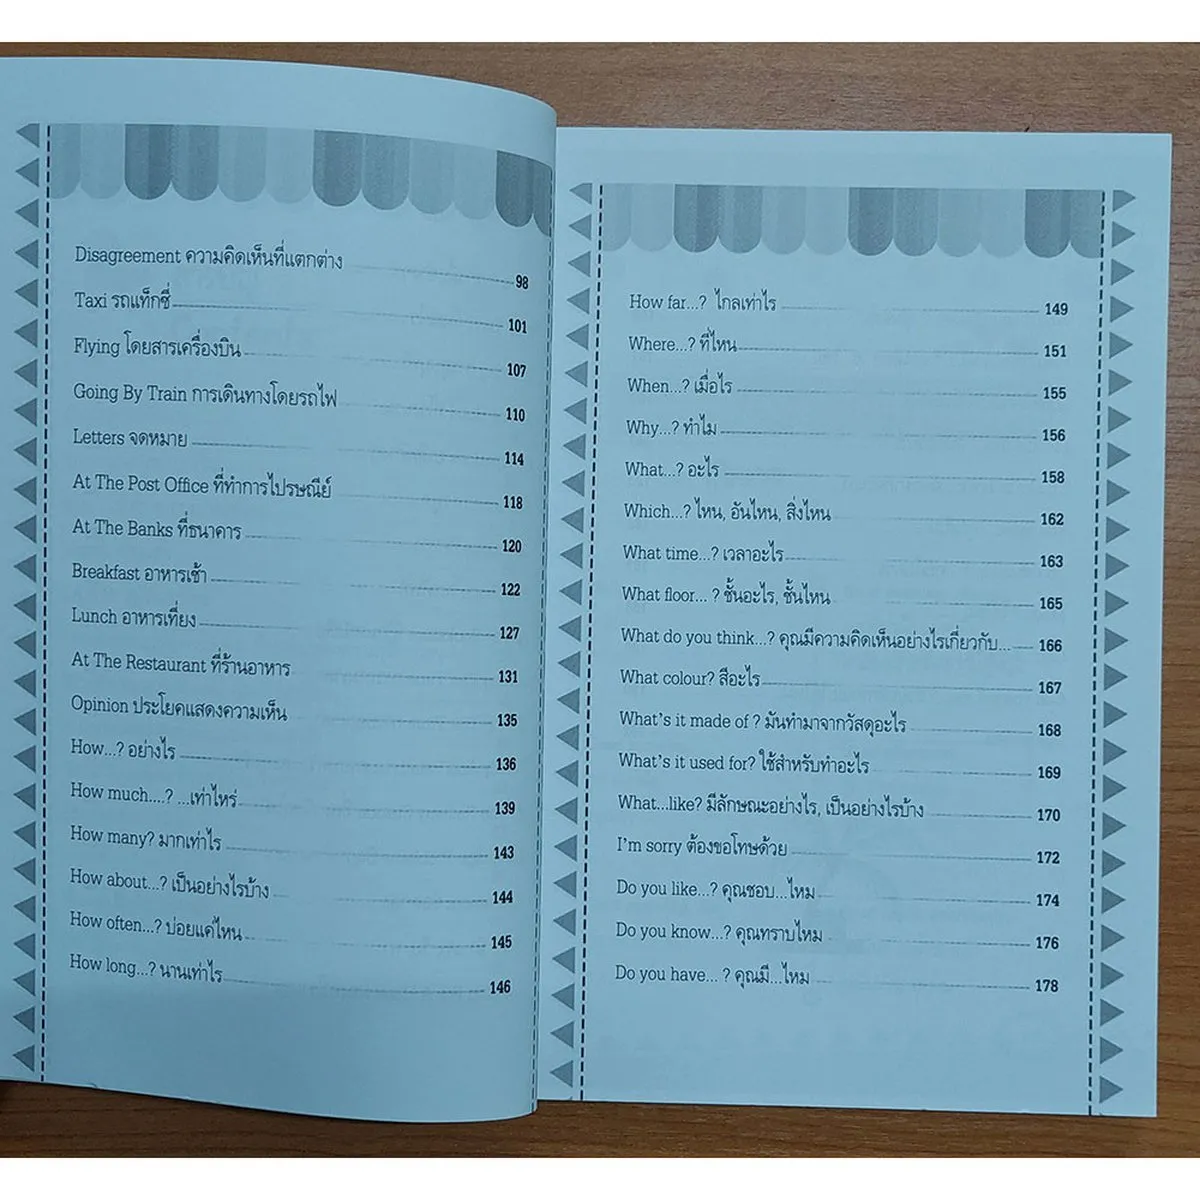 Disagreement ความคิดเห็นที่แตกต่าง 98
Taxi รถแท็กซี่ 101
Flying โดยสารเครื่องบิน 107
Going By Train การเดินทางโดยรถไฟ 110
Letters จดหมาย 114
At The Post Office ที่ทำการไปรษณีย์ 118
At The Banks ที่ธนาคาร 120
Breakfast อาหารเช้า 122
Lunch อาหารเที่ยง 127
At The Restaurant ที่ร้านอาหาร 131
Opinion ประโยคแสดงความเห็น 135
How...? อย่างไร 136
How much....? ...เท่าไหร่ 139
How many? มากเท่าไร 143
How about...? เป็นอย่างไรบ้าง 144
How often...? บ่อยแค่ไหน 145
How long...? นานเท่าไร 146
How far...? ไกลเท่าไร 149
Where...? ที่ไหน 151
When...? เมื่อไร 155
Why...? ทำไม 156
What...? อะไร 158
Which...? ไหน, อันไหน, สิ่งไหน 162
What time...? เวลาอะไร 163
What floor... ? ชั้นอะไร, ชั้นไหน 165
What do you think...? คุณมีความคิดเห็นอย่างไรเกี่ยวกับ... 166
What colour? สีอะไร 167
What's it made of ? มันทำมาจากวัสดุอะไร 168
What's it used for? ใช้สำหรับทำอะไร 169
What...like? มีลักษณะอย่างไร, เป็นอย่างไรบ้าง 170
I'm sorry ต้องขอโทษด้วย 172
Do you like...? คุณชอบ...ไหม 174
Do you know...? คุณทราบไหม 176
Do you have... ? คุณมี...ไหม 178